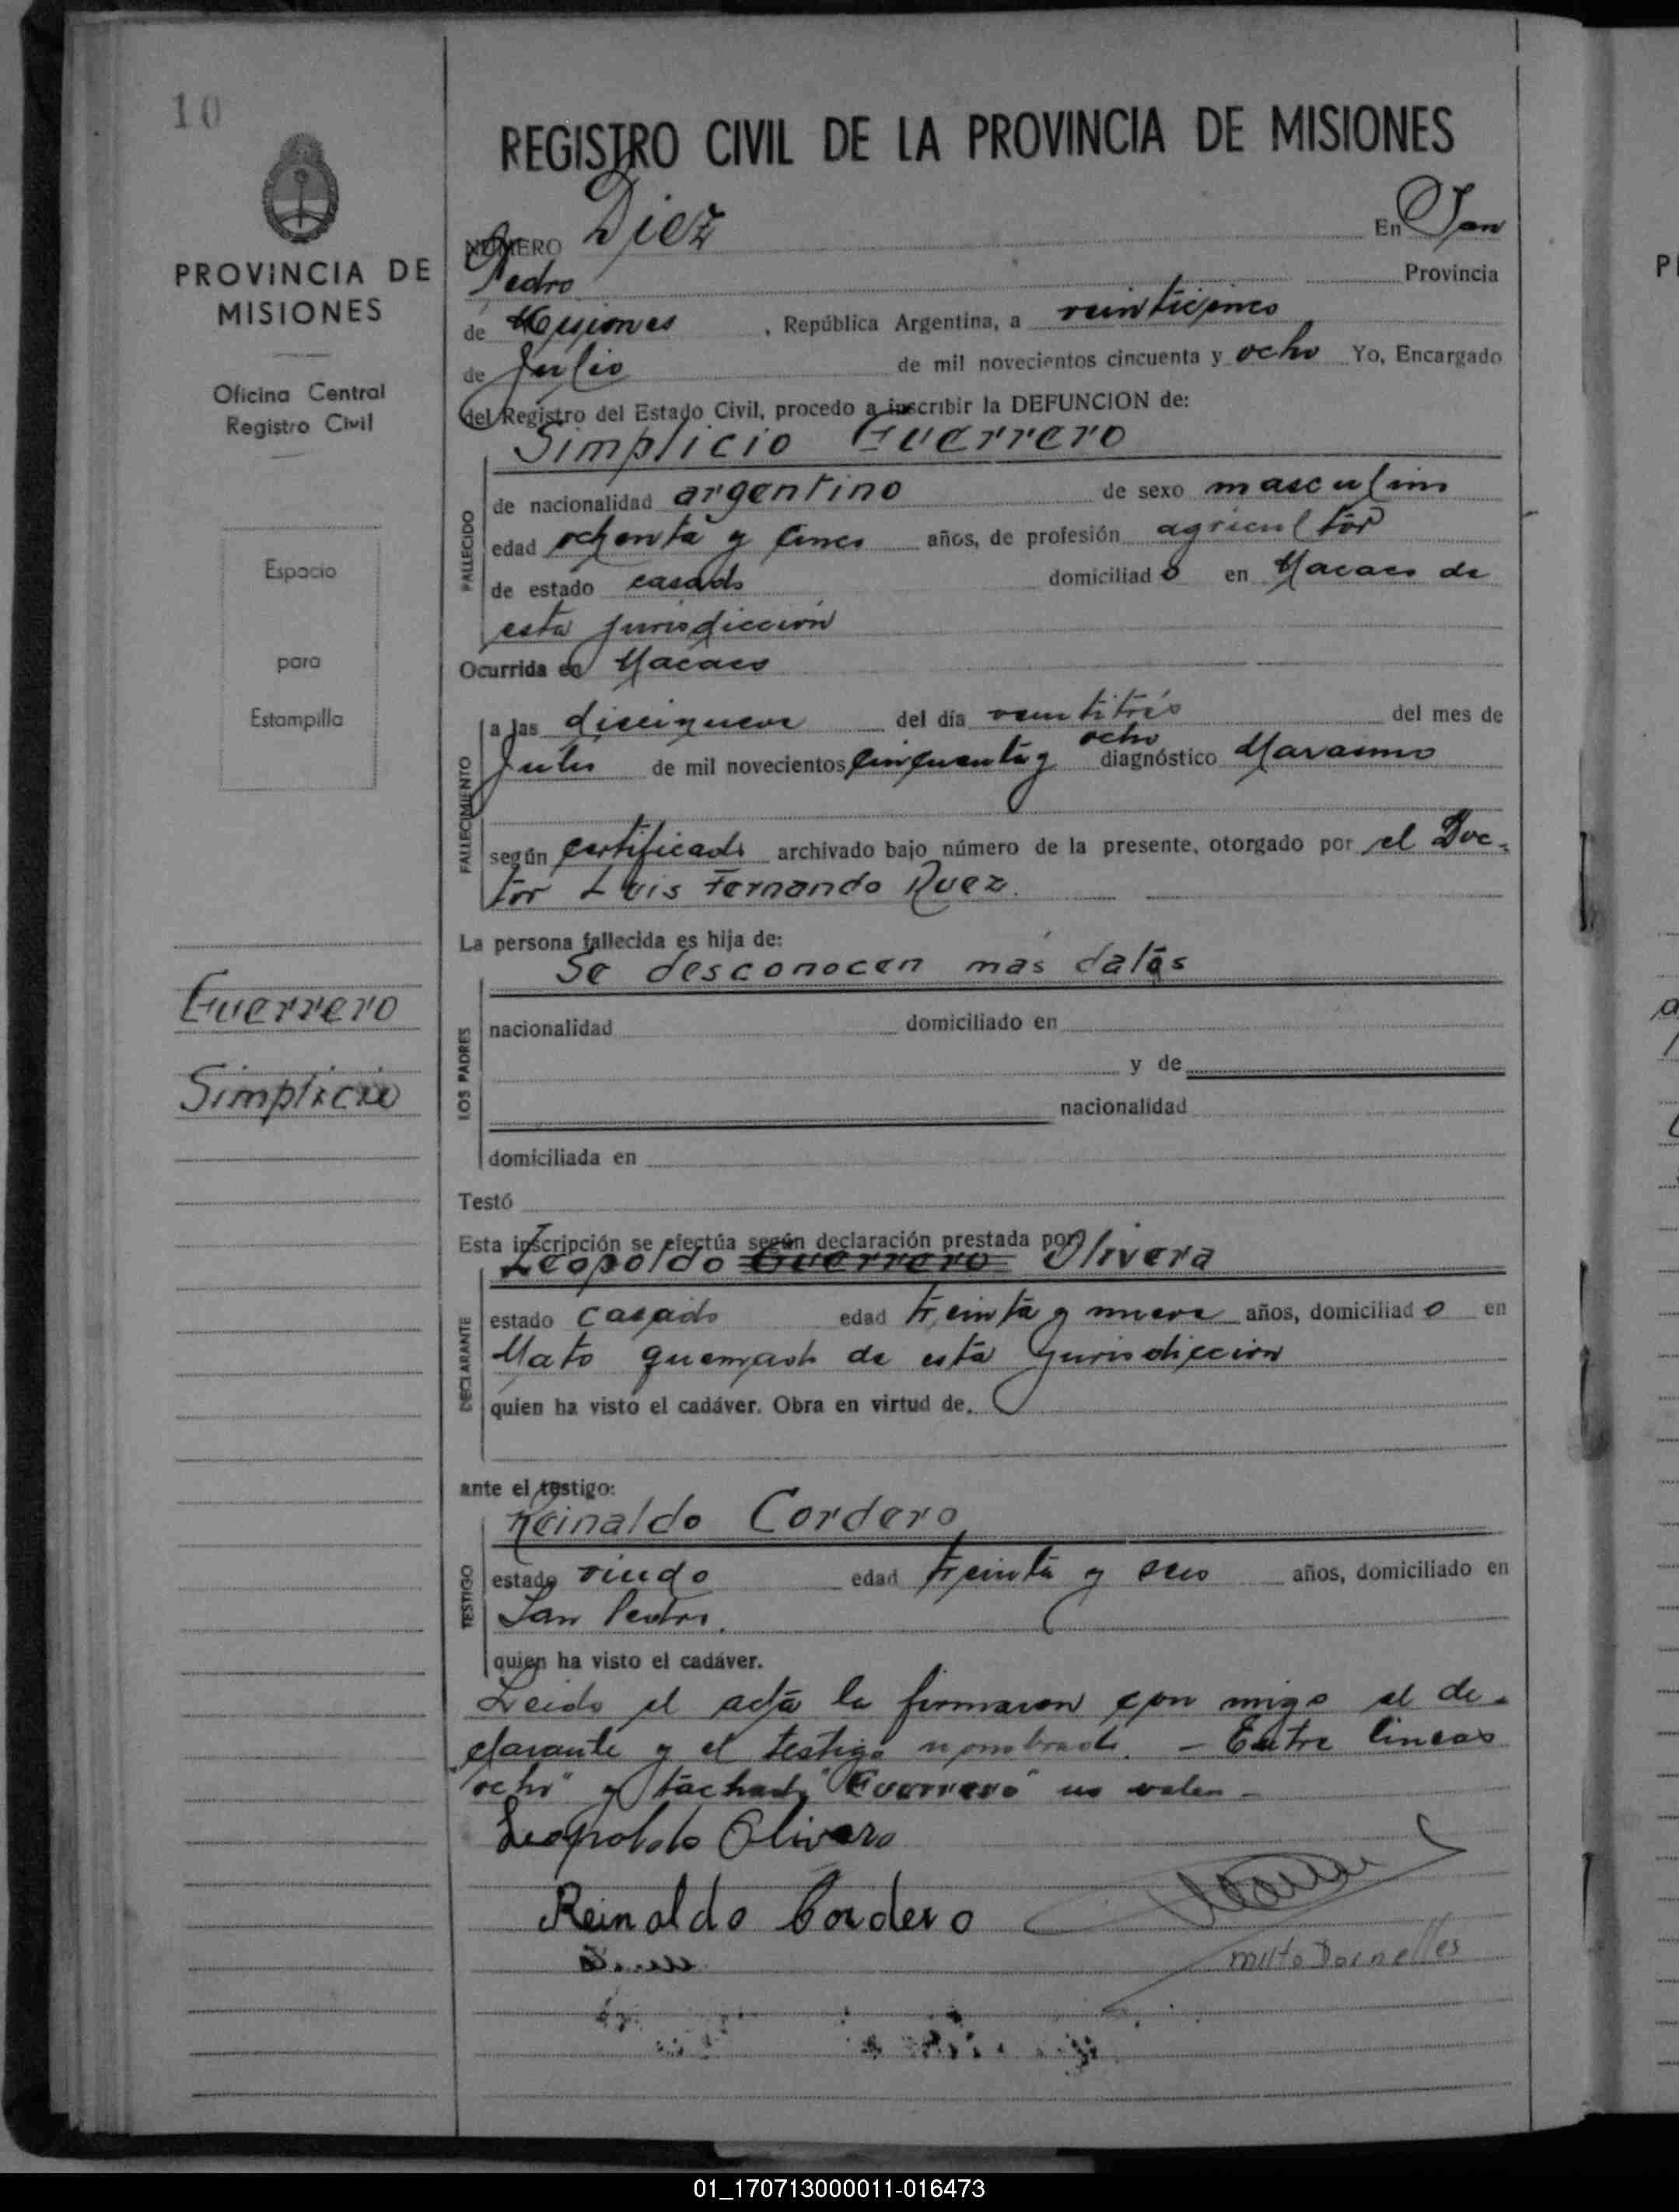 10
PROVINCIA DE
MISIONES
Oficina Central
Registro Civil
Espacio
para
Estampilla
Guerrero
Simplicio
REGISTRO CIVIL DE LA PROVINCIA DE MISIONES
NÚMERO Diez En San
Pedro Provincia
de Misiones, República Argentina, a veinticinco
de Julio de mil novecientos cincuenta y ocho Yo, Encargado
del Registro del Estado Civil, procedo a inscribir la DEFUNCION de:
Simplicio Guerrero
FALLECIDO
de nacionalidad argentino de sexo masculino
edad ochenta y cinco años, de profesión agricultor
de estado casado domiciliado en Macaco de
esta jurisdicción
Ocurrida en Macaco
FALLECIMIENTO
a las diecinueve del día veintitrés del mes de
Julio de mil novecientos cincuenta y ocho diagnóstico Marasmo
según certificado archivado bajo número de la presente, otorgado por el Doc-
tor Luis Fernando Ruez.
La persona fallecida es hija de:
Se desconocen mas datos
LOS PADRES
nacionalidad domiciliado en
y de
nacionalidad
domiciliada en
Testó
Esta inscripción se efectúa según declaración prestada por
Leopoldo Guerrero Olivera
DECLARANTE
estado casado edad treinta y nueve años, domiciliado en
Mato quemado de esta jurisdicción
quien ha visto el cadáver. Obra en virtud de.
ante el testigo:
Reinaldo Cordero
TESTIGO
estado viudo edad treinta y seis años, domiciliado en
San Pedro.
quien ha visto el cadáver.
Leido el acta la firmaron con migo el de-
clarante y el testigo nombrado. - Entre lineas
"ocho" y tachado "Guerrero" no valen -
Leopoldo Olivera
Reinaldo Cordero
Milto Dornelles
01_170713000011-016473